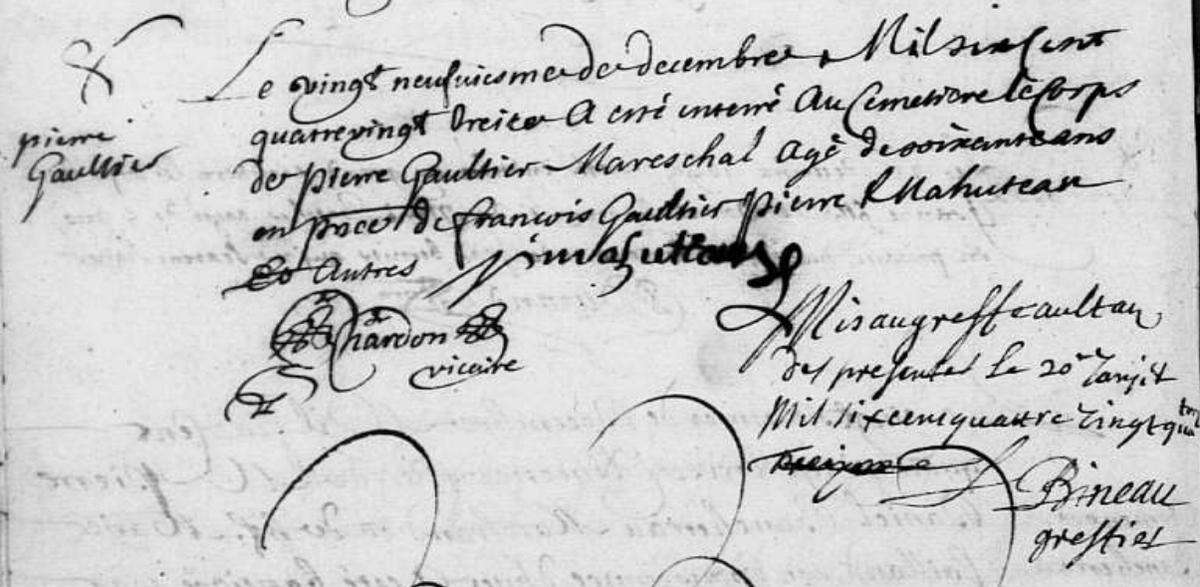 pierre
Gaultier
Le vingt neufviesme de decembre Mil six cent
quatre vingt treise A esté interré Au Cemetiere le Corps
de pierre Gaultier Mareschal Agé de soixante ans
en pnce de francois Gaultier pierre Mahuteau
Et Autres
Chardon
vicaire
Mis au greffe
des presente Le 20e
Mil six cent quattre vingt
Bineau
greffier